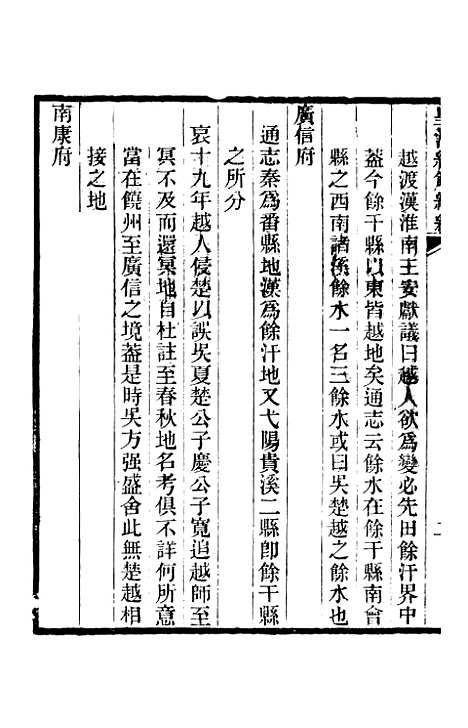 越渡漢淮南王安獻議曰越人欲爲變必先田餘汗界中
葢今餘干縣以東皆越地矣通志云餘水在餘干縣南會
縣之西南諸溪餘水一名三餘水或曰吳楚越之餘水也
廣信府
通志秦爲番縣地漢爲餘汗地又弋陽貴溪二縣卽餘干縣
之所分
哀十九年越人侵楚以誤吳夏楚公子慶公子寬追越師至
冥不及而還冥地自杜註至春秋地名考俱不詳何所意
當在饒州至廣信之境葢是時吳方强盛舍此無楚越相
接之地
南康府